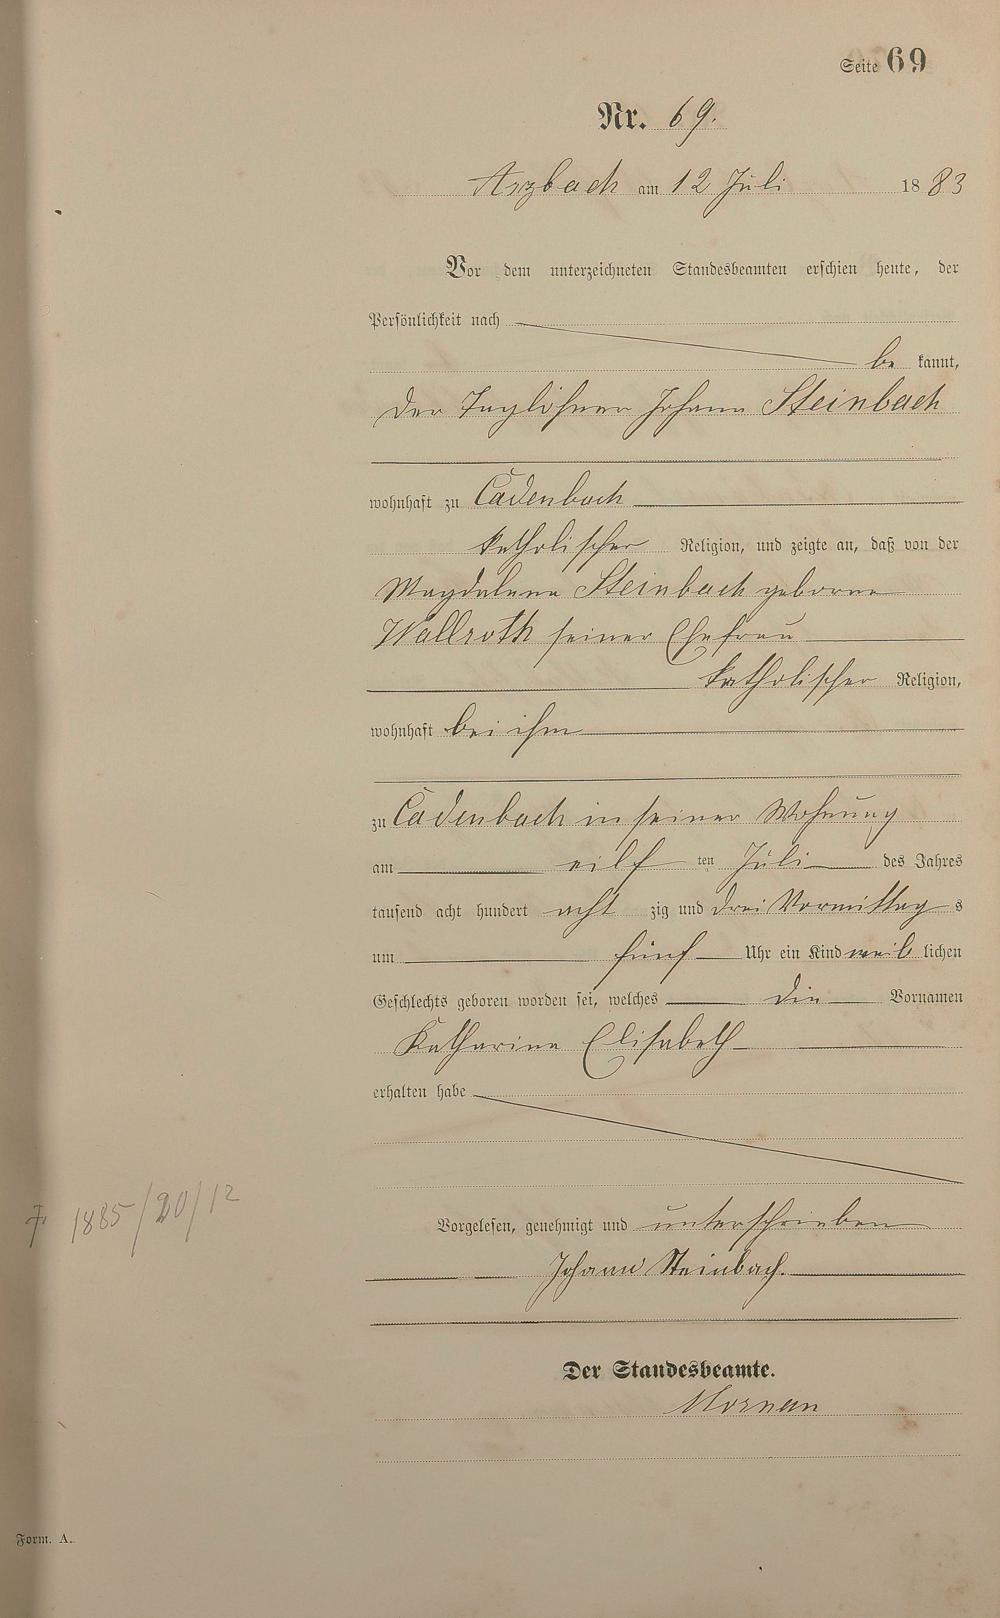 Seite 69
Nr. 69.
Arzbach am 12 Juli 1883
Vor dem unterzeichneten Standesbeamten erschien heute, der
Persönlichkeit nach
be kannt,
der Taglöhner Johann Steinbach
wohnhaft zu Cadenbach
katholischer Religion, und zeigte an, daß von der
Magdalena Steinbach geborne
Wallroth seiner Ehefrau
katholischer Religion,
wohnhaft bei ihm
zu Cadenbach in seiner Wohnung
am eilf ten Juli des Jahres
tausend acht hundert acht zig und drei Vormittag s
um fünf Uhr ein Kind weib lichen
Geschlechts geboren worden sei, welches die Vornamen
Katharina Elisabeth
erhalten habe
† 1885/20/12
Vorgelesen, genehmigt und unterschrieben
Johann Steinbach.
Der Standesbeamte.
Form. A.